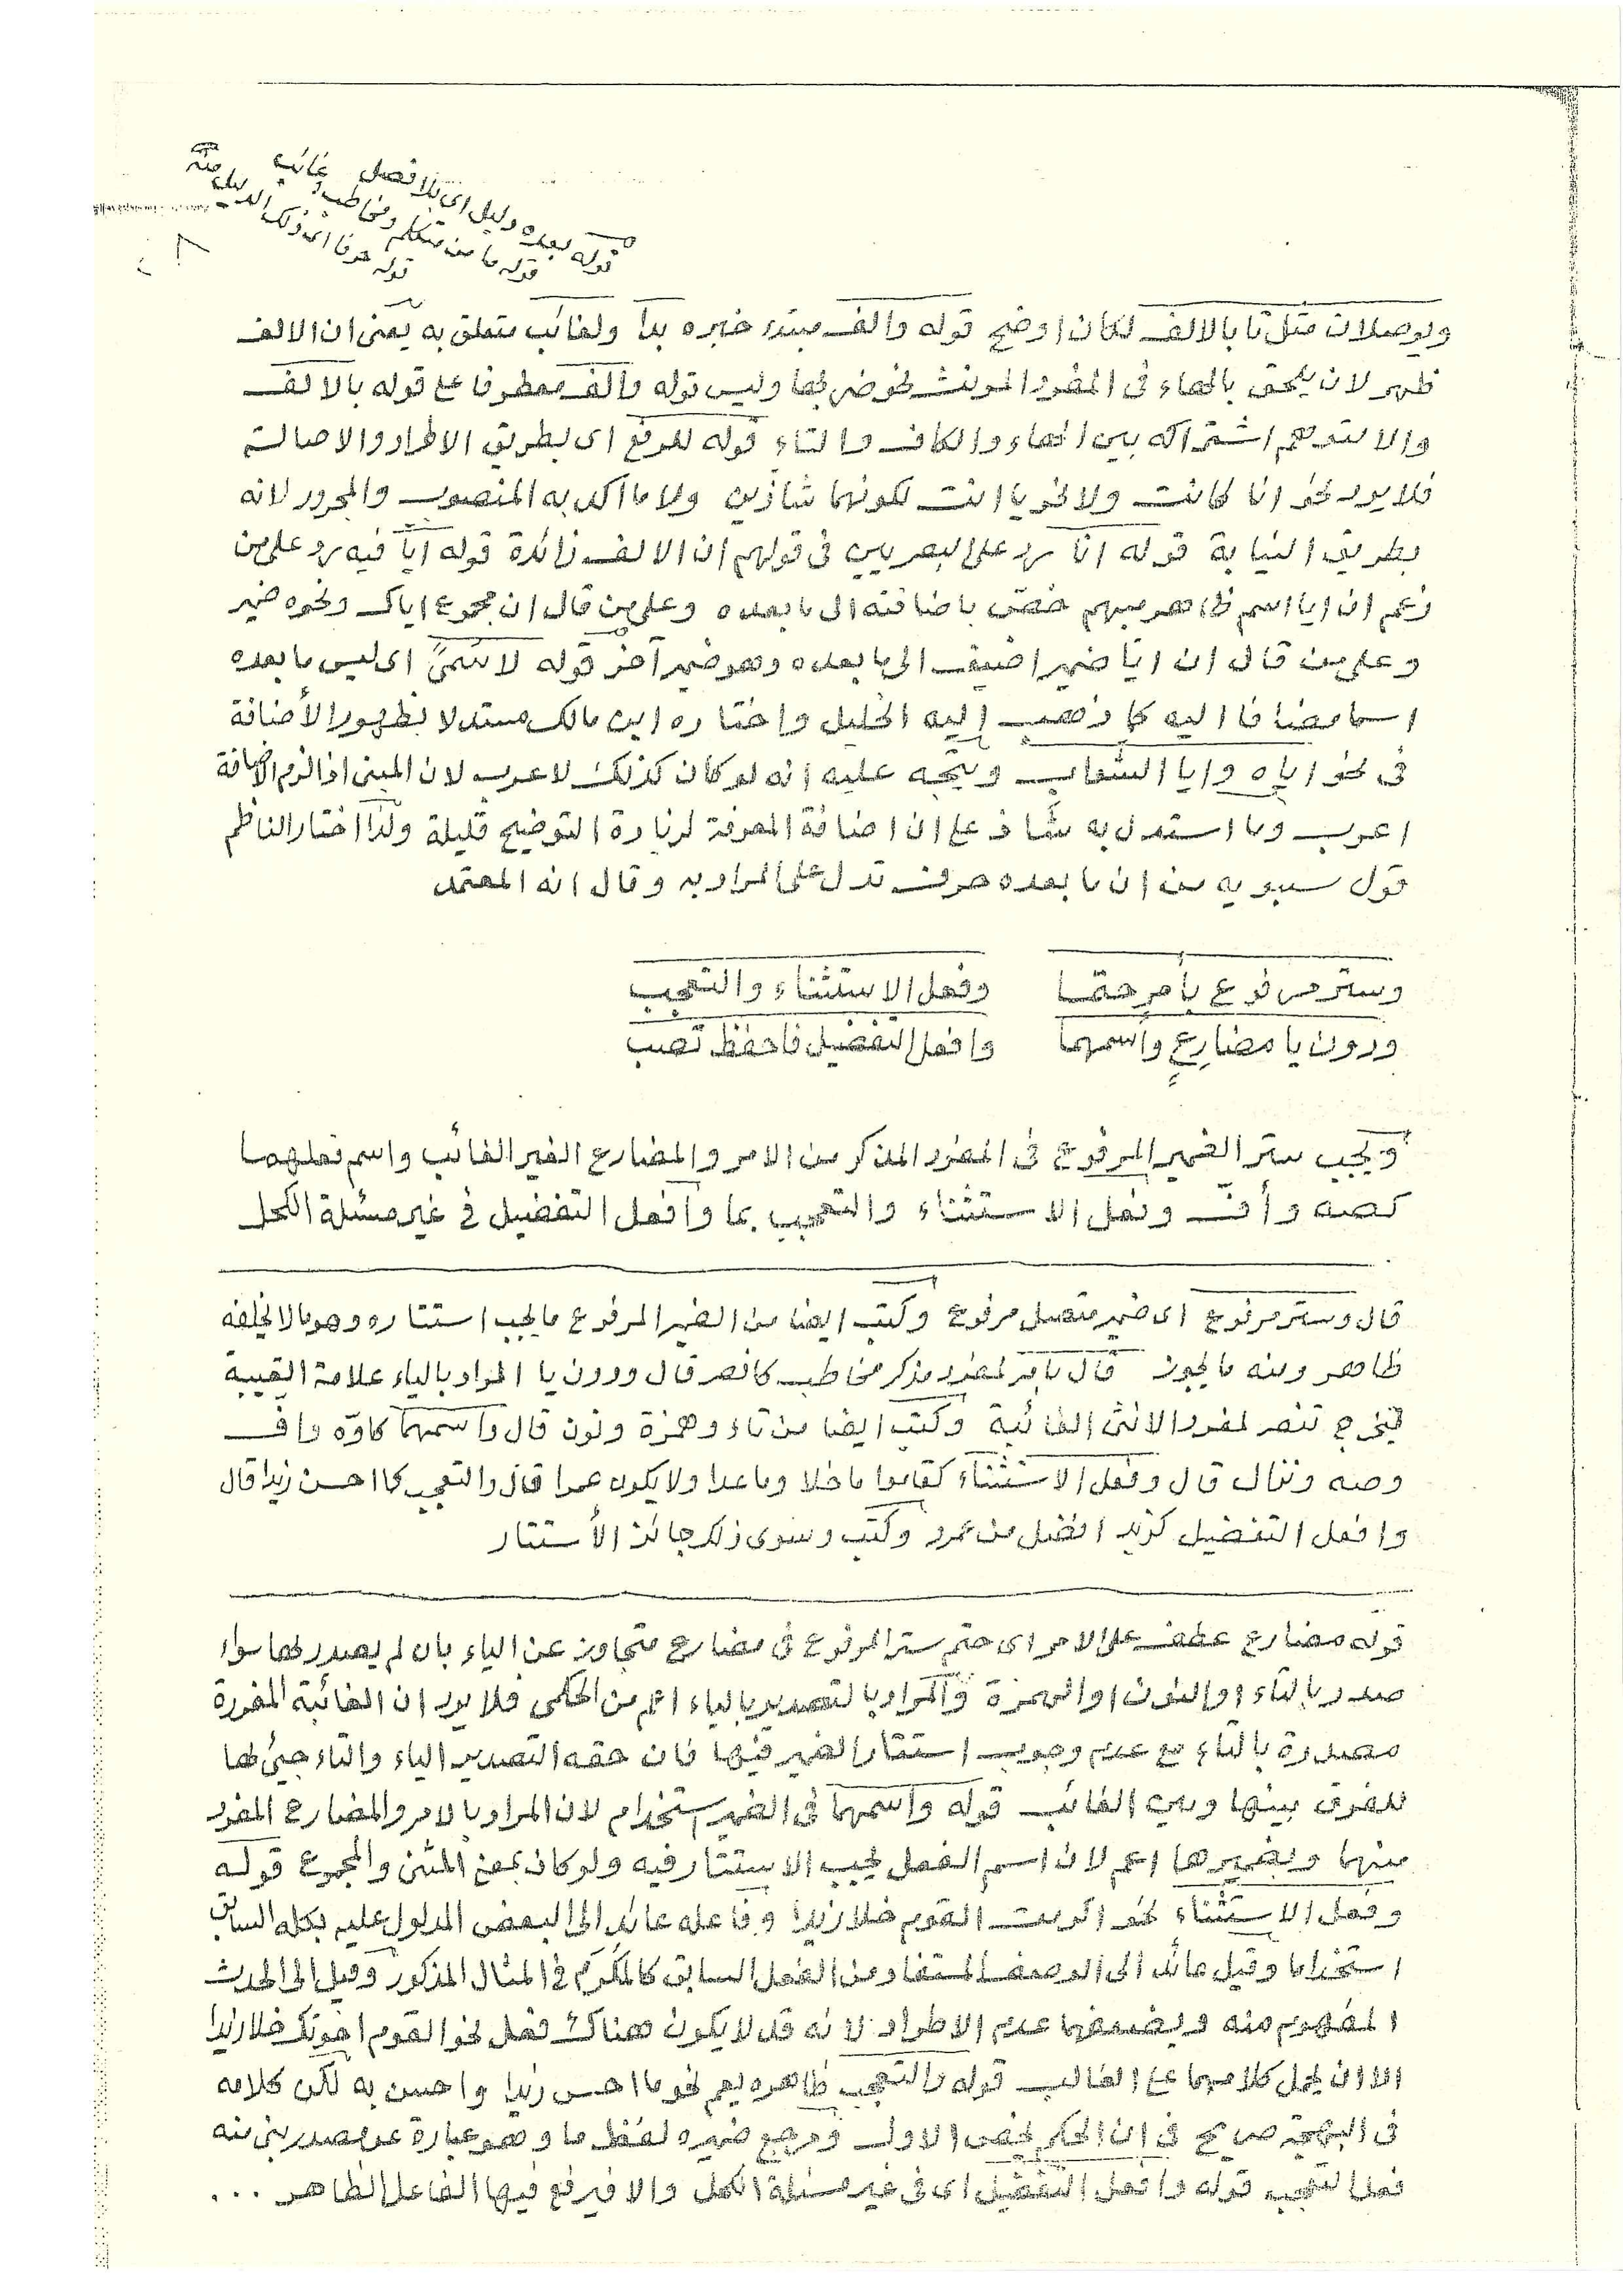 قوله بعده دليل اى بلا فصل غائب
قوله ما من متكلم ومخاطب
قوله حرفا اى ذلك الدليل منه
ويوصلان مثل تا بالالف لكان اوضح قوله والف مبتدء خبره بدا ولغائب متعلق به يعنى ان الالف
ظهر لان يلحق بالهاء فى المفرد المونث نحو ضربها وليس قوله والف معطوفا على قوله بالالف
والا لتوهم اشتراكه بين الهاء والكاف والتاء قوله للرفع اى بطريق الاطراد والاصالت
فلا يرد نحو انا كانت ولا نحو يا انت لكونهما شاذين ولا ما اكد به المنصوب والمجرور لانه
بطريق النيابة قوله انا رد على البصريين فى قولهم ان الالف زائدة قوله ايا فيه رد على من
زعم ان ايا اسم ظاهر مبهم خصّ باضافته الى ما بعده وعلى من قال ان مجموع اياك ونحوه ضمير
وعلى من قال ان ايا ضمير اضيف الى ما بعده وهو ضمير آخر قوله لا سمىً اى ليس ما بعده
اسما مضافا اليه كما ذهب اليه الخليل واختاره ابن مالك مستدلا بظهور الأضافة
فى نحو اياه وايا الشواب ويتجه عليه انه لو كان كذلك لاعرب لان المبنى اذا لزم الاضافة
اعرب وما استدل به شاذ على ان اضافة المعرفة لزيادة التوضيح قليلة ولذا اختار الناظم
قول سيبويه من ان ما بعده حرف تدل على المراد به وقال انه المعتمد
وستر مرفوع بأمر حتما وفعل الاستثناء والتعجب
ودون يا مضارعٍ واسمهما وافعل التفضيل فاحفظ تصب
ويجب ستر الضمير المرفوع فى المفرد المذكر من الامر والمضارع الغير الغائب واسم فعلهما
كصه وأفّ وفعل الاستثناء والتعجب بما وافعل التفضيل فى غير مسئلة الكحل
قال وستر مرفوع اى ضمير متصل مرفوع وكتب ايضا من الضمير المرفوع ما يجب استتاره وهو ما لا يخلفه
ظاهر ومنه ما يجوز قال بامر لمفرد مذكر مخاطب كانصر قال ودون يا المراد بالياء علامة الغيبة
فيخرج تنصر لمفرد الانثى الغائبة وكتب ايضا من تاء وهمزة ونون قال واسمهما كاوّه واف
وصه ونزال قال وفعل الاستثناء كقاموا ما خلا وما عدا ولا يكون عمرا قال والتعجب كما احسن زيدا قال
وافعل التفضيل كزيد افضل من عمرو وكتب وسوى ذلك جائز الأستتار
قوله مضارع عطف على الامر اى حتم ستر المرفوع فى مضارع متجاوز عن الياء بان لم يصدر بها سواء
صدر بالتاء او النون او الهمزة والمراد بالتصدير بالياء اعم من الحكمى فلا يرد ان الغائبة المفردة
مصدرة بالتاء مع عدم وجوب استتار الضمير فيها فان حقه التصدير الياء والتاء جيئ بها
للفرق بينها وبين الغائب قوله واسمهما فى الضمير استخدام لان المراد بالامر والمضارع المفرد
منهما وبضميرهما اعم لان اسم الفعل يجب الاستتار فيه ولو كان بمعنى المثنى والمجموع قوله
وفعل الاستثناء نحو اكرمت القوم خلا زيدا وفاعله عائد الى البعض المدلول عليه بكله السابق
استخداما وقيل عائد الى الوصف المستفاد من الفعل السابق كالمُكْرَم فى المثال المذكور وقيل الى الحدث
المفهوم منه ويضعفهما عدم الاطراد لانه قد لا يكون هناك فعل نحو القوم اخوتك خلا زيدا
الا ان يحمل كلامهما على الغالب قوله والتعجب ظاهره يعم نحو ما احسن زيدا واحسن به لكن كلامه
فى البهجة صريح فى ان الحكم يخص الاول ومرجع ضميره لفظ ما وهو عبارة عن مصدر بنى منه
فعل التعجب قوله وافعل التفضيل اى فى غير مسئلة الكحل والا فيرفع فيها الفاعل الظاهر ...